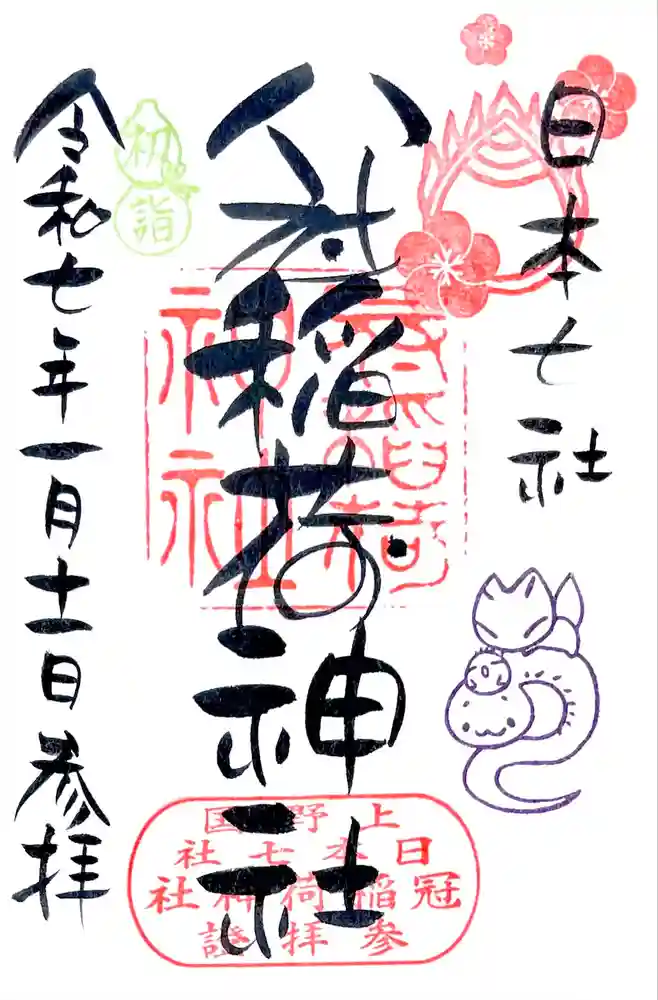 日本七社
冠稲荷神社
令和七年一月十一日参拝
初詣
冠稲荷
神社
上野国
日本七社
冠稲荷神社
参拝證